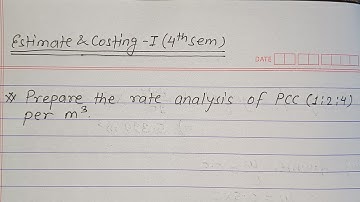 Estimate & Costing - I (4th sem)
DATE
※ Prepare the rate analysis of PCC (1:2:4)
per m³.